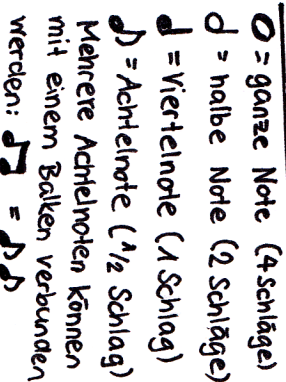 𝅝 = ganze Note (4 Schläge)
𝅗𝅥 = halbe Note (2 Schläge)
♩ = Viertelnote (1 Schlag)
♪ = Achtelnote (1/2 Schlag)
Mehrere Achtelnoten können
mit einem Balken verbunden
werden: ♫ = ♪♪